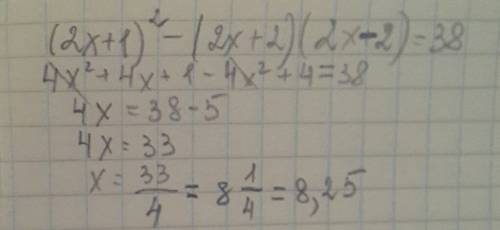 (2x+1)² - (2x+2)(2x-2) = 38
4x² + 4x + 1 - 4x² + 4 = 38
4x = 38 - 5
4x = 33
x = 33/4 = 8 1/4 = 8,25